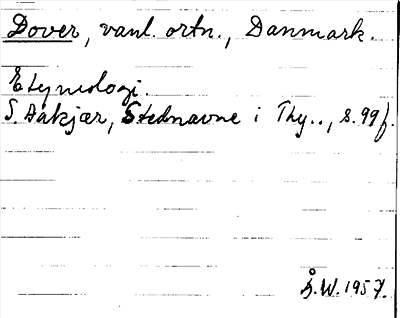 Dover, vanl. ortn., Danmark.
Etymologi.
S. Aakjær, Stednavne i Thy.., s. 99 f.
Å.W. 1957.